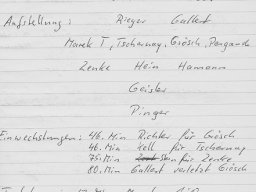 Aufstellung: Rieger Gallert
Marek T, Tschernay, Grösch, Pergande
Zenke Hein Hamann
Geisler
Pinger
Einwechslungen: 46. Min Richter für Grösch
46. Min Kell für Tschernay
75. Min für Zenke
80. Min Gallert verletzt Grösch